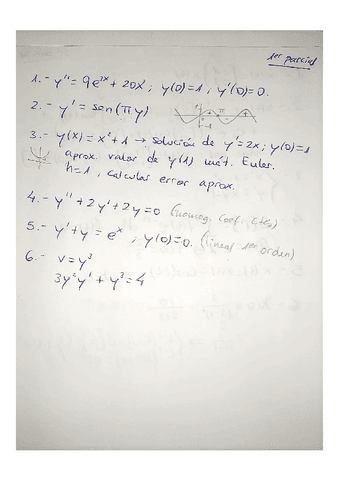 1er parcial
1.- y'' = 9e³ˣ + 20x³ ; y(0)=1 , y'(0)=0.
2.- y' = sen(πy)
3.- y(x) = x²+1 → solución de y'=2x; y(0)=1
aprox. valor de y(1) mét. Euler.
h=1 , calcular error aprox.
4.- y'' + 2y' + 2y = 0 (homog. coef. ctes)
5.- y' + y = eˣ , y(0)=0. (lineal 1er
orden)
6.- v = y³
3y²y' + y³ = 4